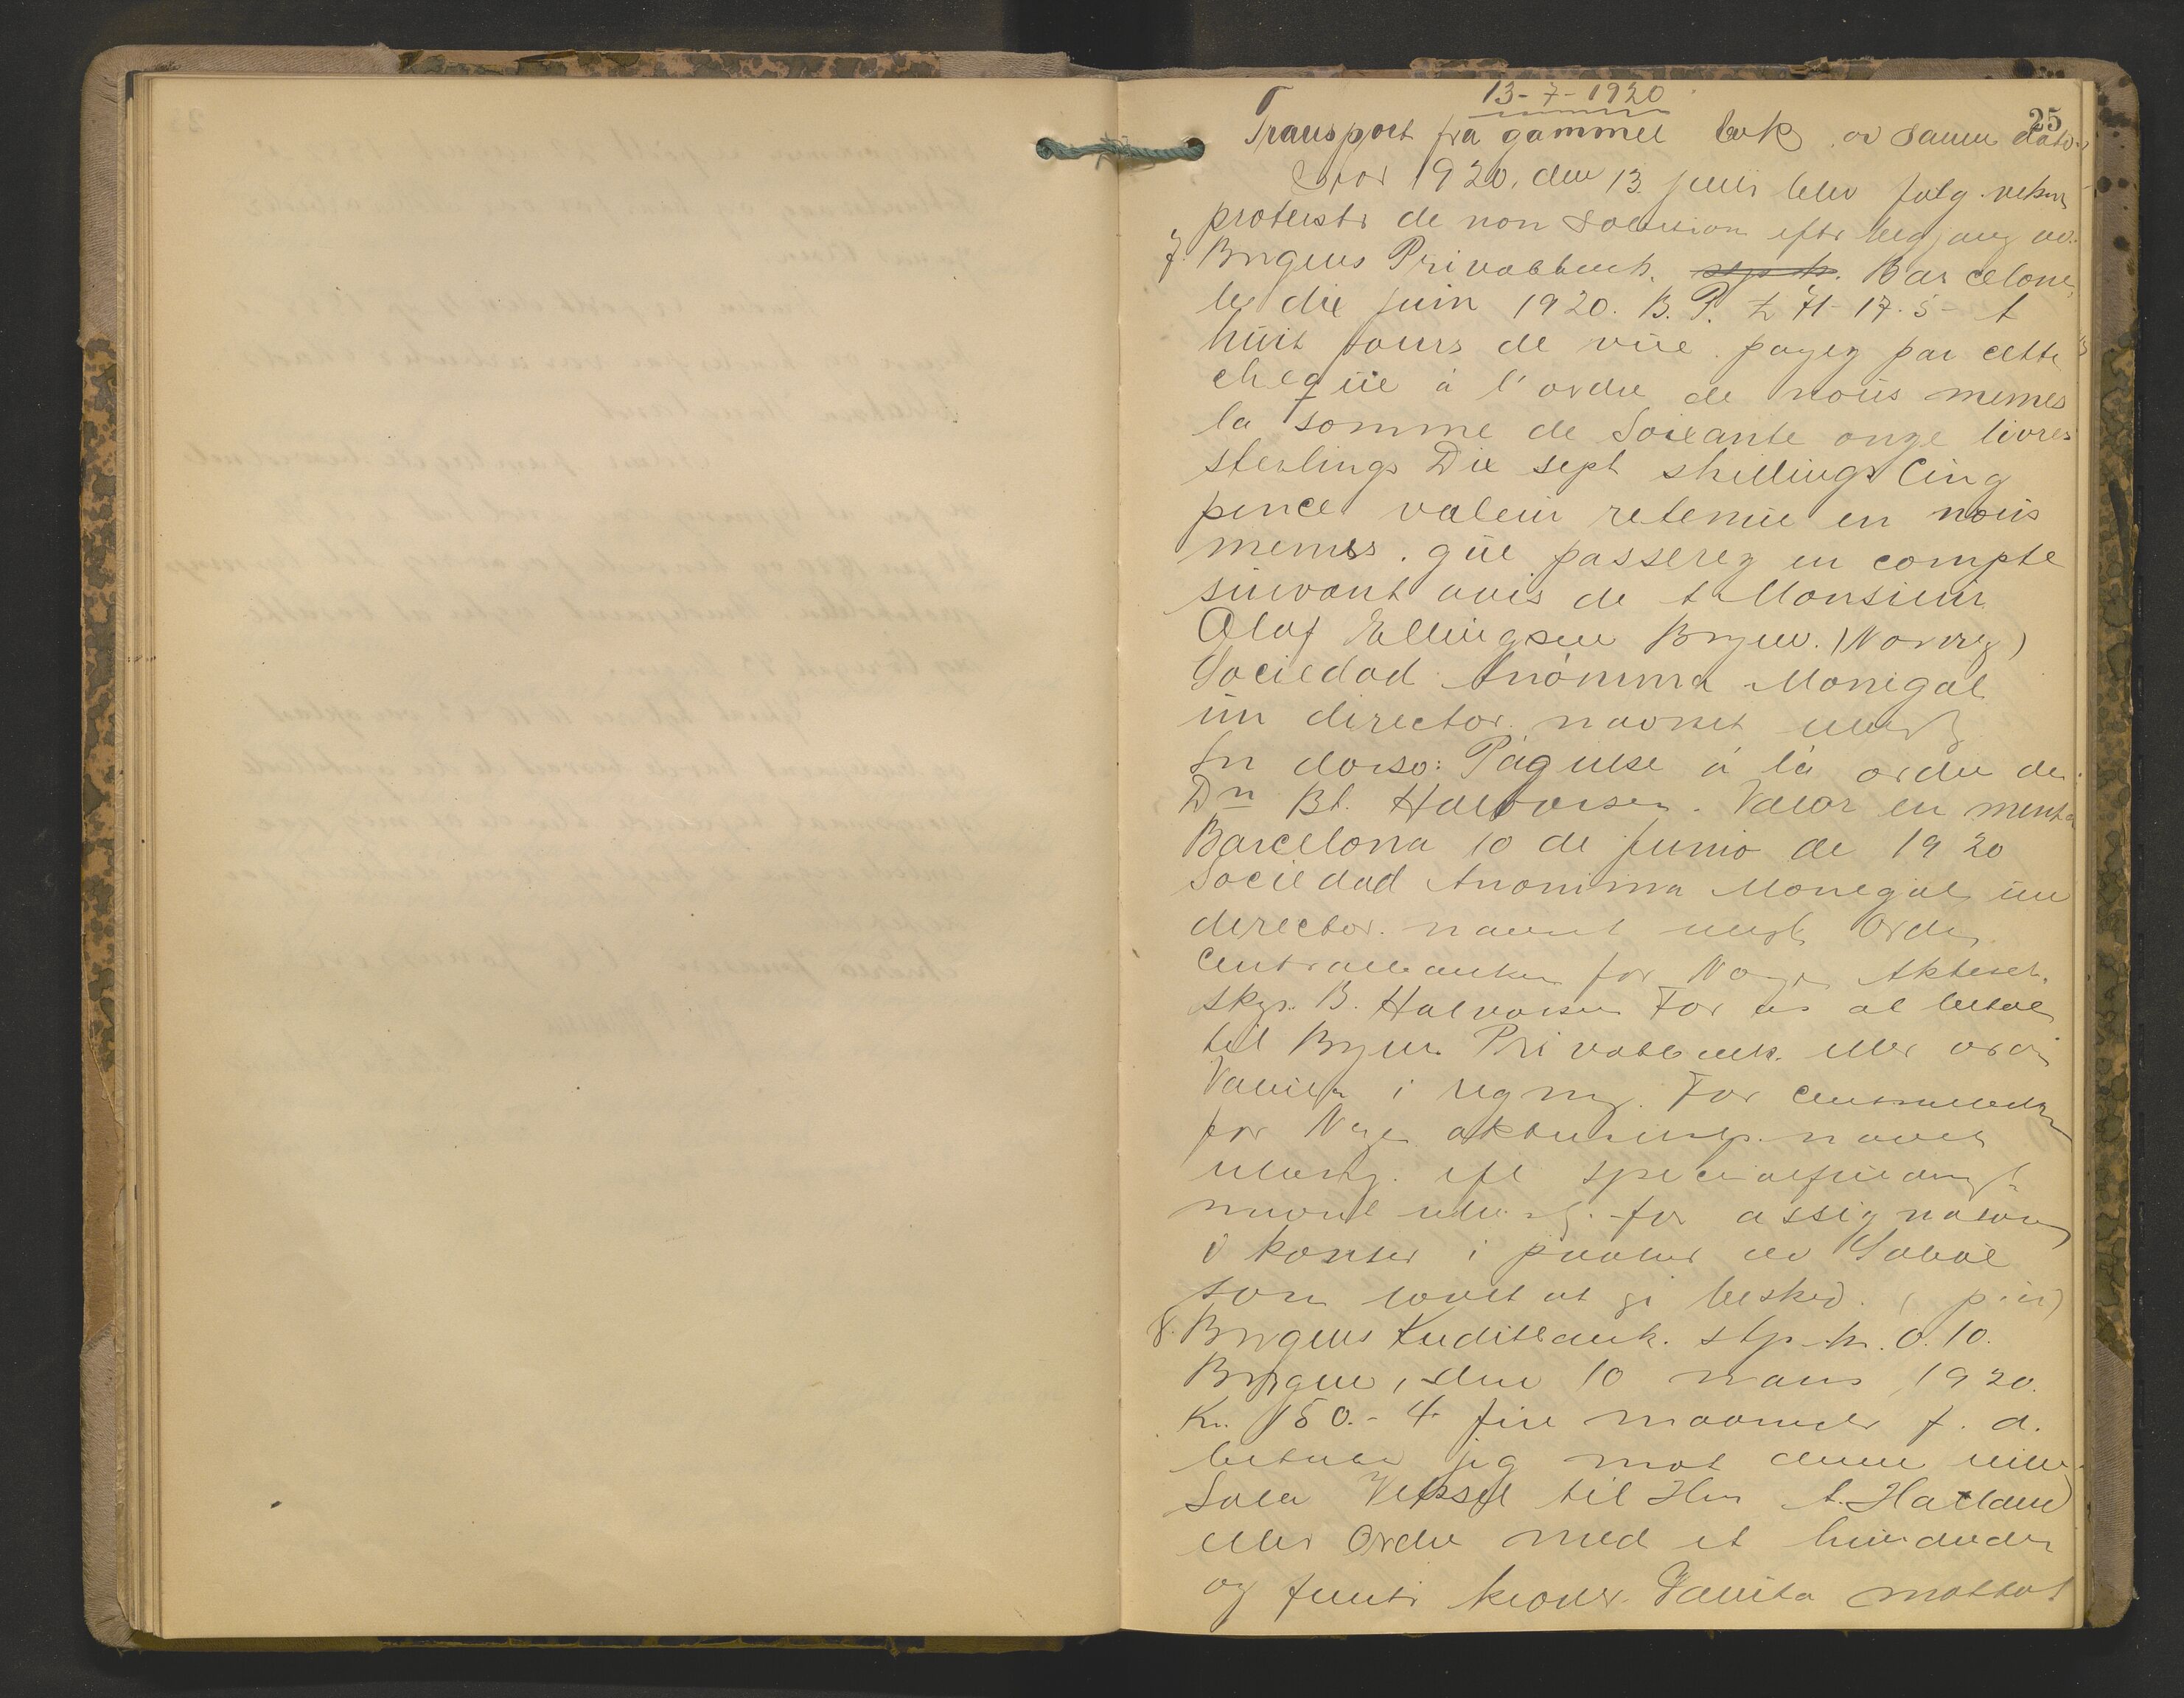 13-7-1920
25
Transport fra gammel bok av samme dato.
Aar 1920, den 13 juli blev følg. veksler
protestr de non solution eftr begjæring av
7. Brgens Privatbank. stp. k. Barcelone,
le dix juin 1920. B. P. £ 71-17-5- A
huit jours de vüe payez par cette
cheqüe à l'ordre de noüs memes
la somme de Soixante onze livres
sterlings Dix sept shillings Cinq
pence valeür retenüe en noüs
memes. qüe passerez en compte
süivant avis de A Monsieür
Olaf Ellingsen Brgen. (Norveg)
Sociedad Anónima Monegal
ün director navnet
In dorso: Páguese á lá orden de
Dn Bt. Halvorsen. Valor en
Barcelona 10 de Junio de 1920
Sociedad Anonima Monegal ün
director. navnet Ordre
Centralbanken for Norge Aktiesel.
skp. B. Halvorsen For os at betale
til Brgens Privatbank. eller ordre
Valuta i regning. For Centralbanken
for Norge navnet
utydelig. ifl
navnet for assignaten
i kontor i av
som lovet at gi besked.
8. Brgens Kreditbank. stp. m. 0.10.
Brgen, den 10 mars 1920.
Kr. 150.- 4 fire maaneder f. d.
betaler jeg mot denne min
Sola Veksel til Hr. A. Hatland
eller Ordre med et hundrede
og femti kroner. Valuta mottat